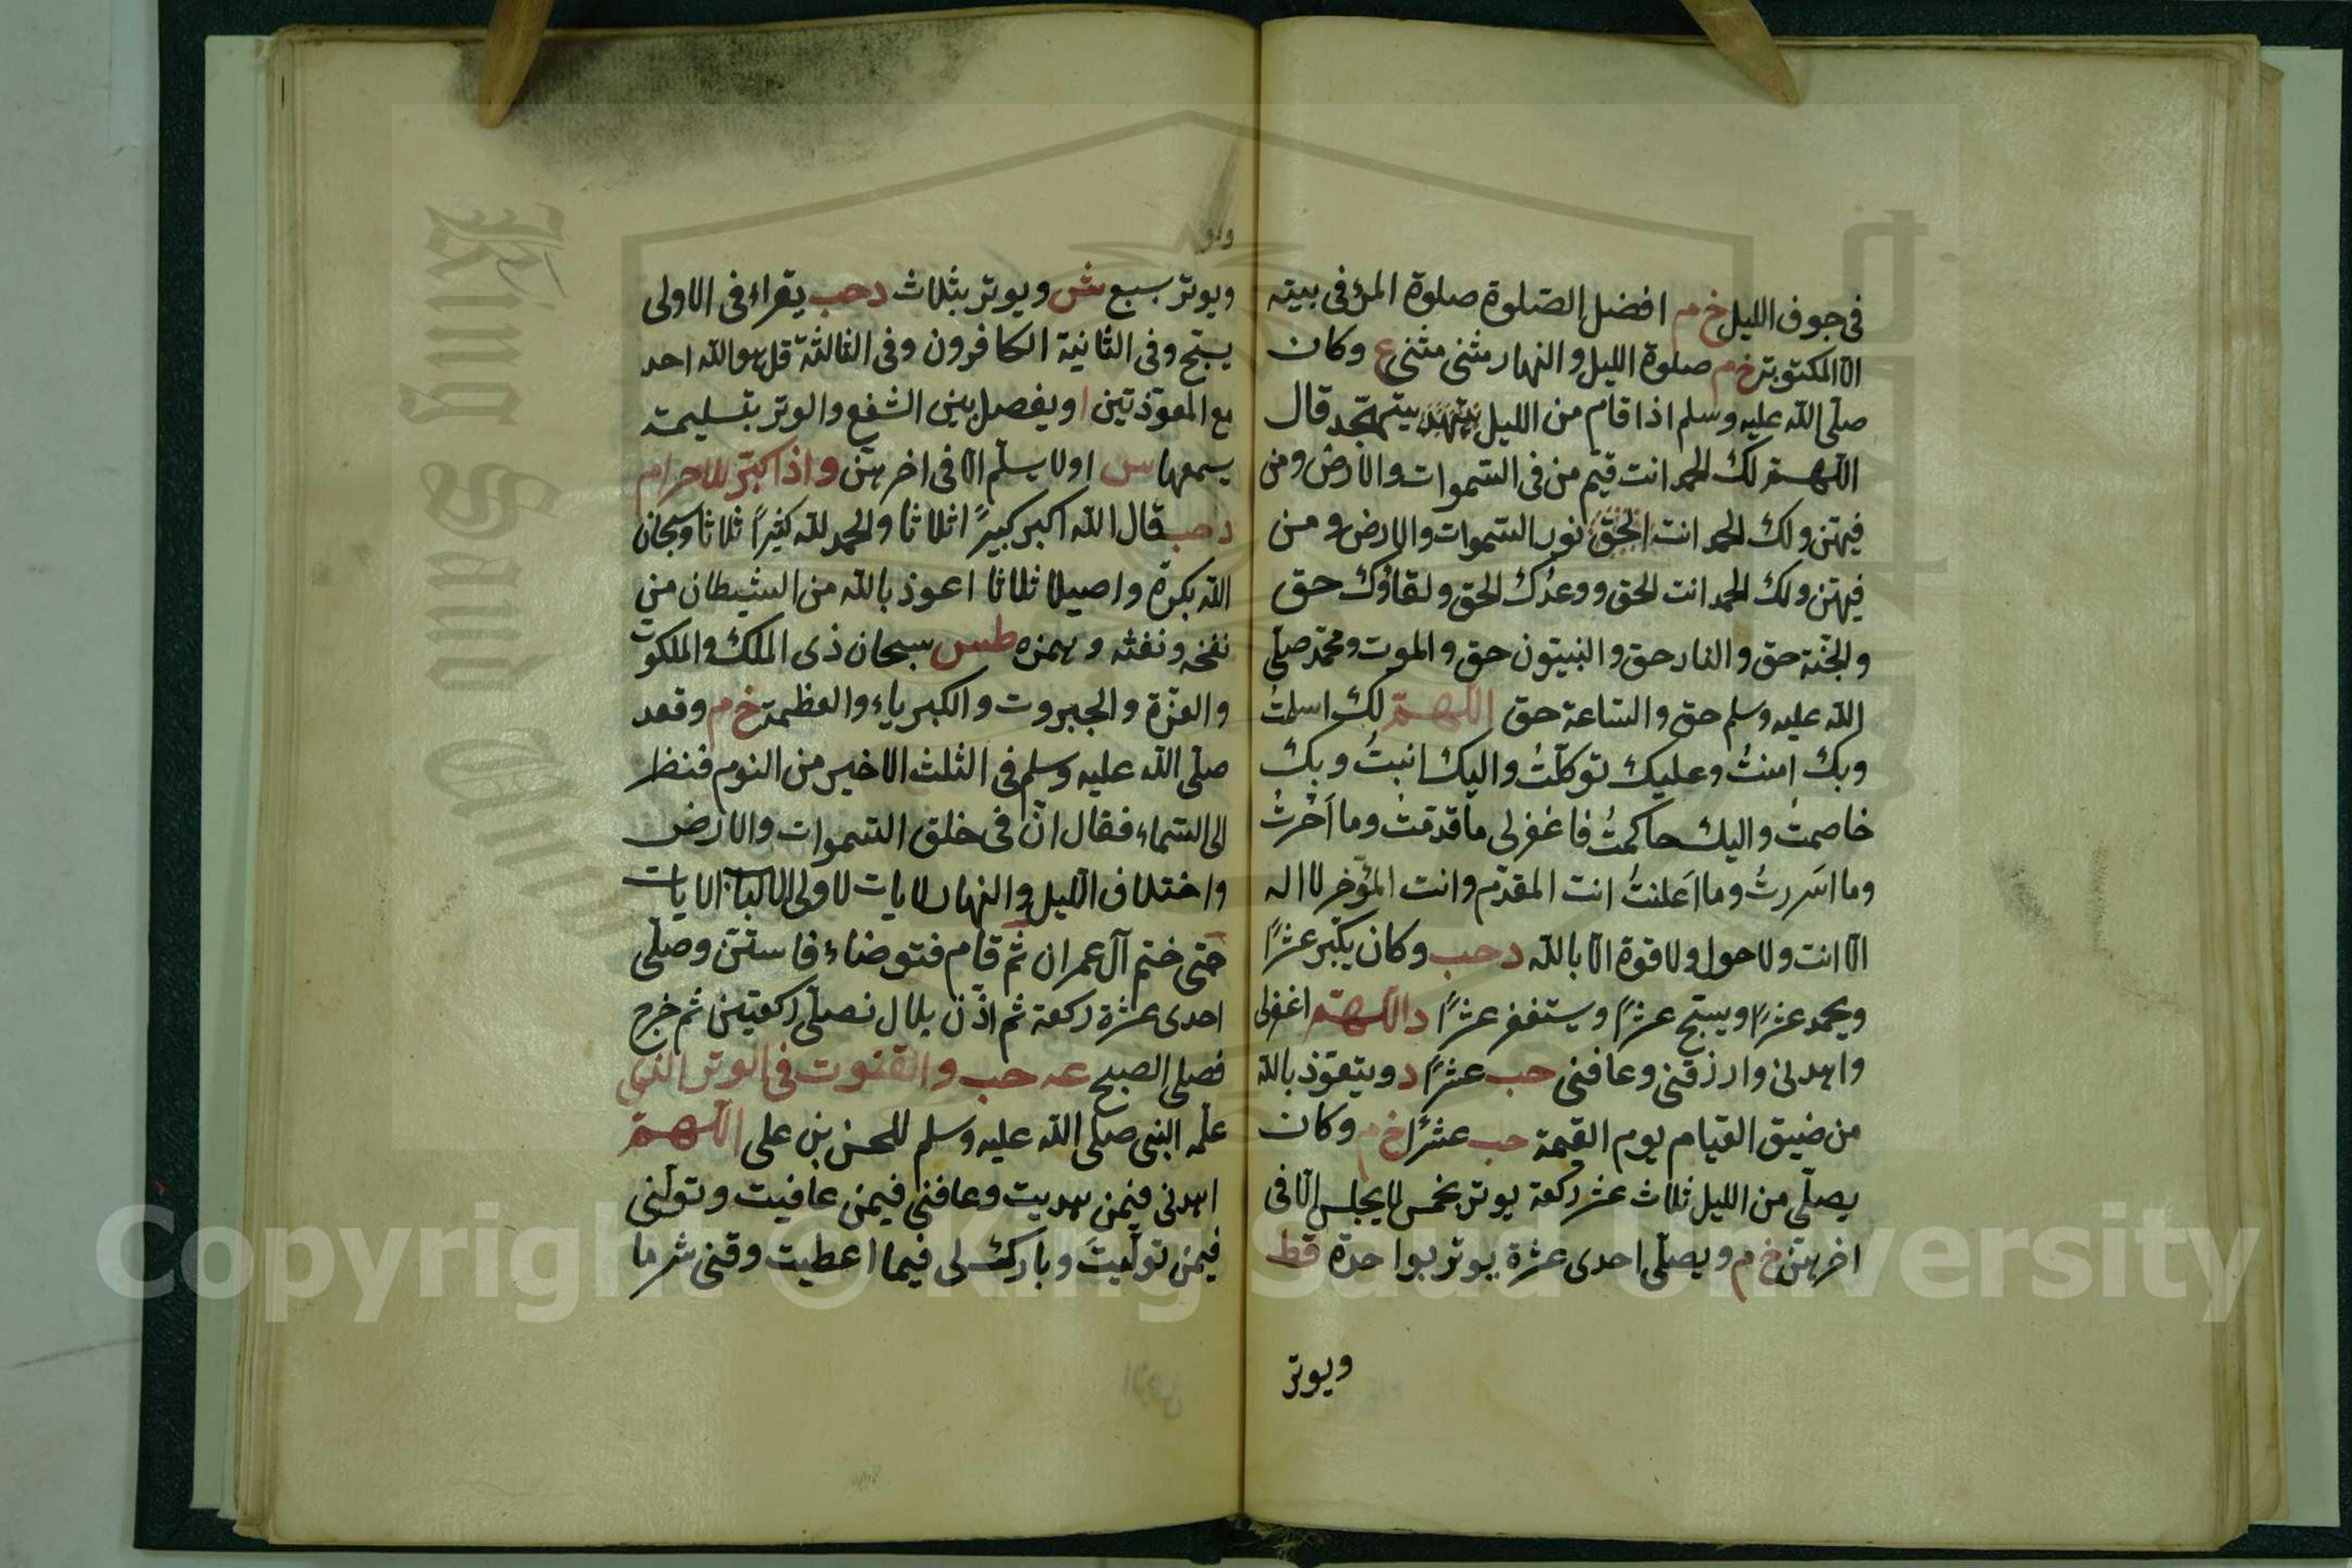 فى جوف الليل خ م افضل الصّلوة صلوة المرء فى بيته
الا المكتوبة خ م صلوة الليل والنهار مثنى مثنى ع وكان
صلّى الله عليه وسلم اذا قام من الليل يتهجّد قال
اللّهمّ لك الحمد انت قيّم من فى السّموات والارض ومن
فيهنّ ولك الحمد انت الحق نور السّموات والارض ومن
فيهنّ ولك الحمد انت الحق ووعدُك الحق ولقاؤك حق
والجنّة حق والنار حق والنبيّون حق والموت ومحمّد صلّى
الله عليه وسلم حق والسّاعة حق اللّهمّ لك اسلمتُ
وبك امنتُ وعليك توكلّتُ واليك انبتُ وبك
خاصمتُ واليك حاكمتُ فاغفر لى ما قدّمتُ وما اَخّرتُ
وما اسَررتُ وما اَعلنتُ انت المقدّم وانت المؤخّر لا اله
الّا انت ولا حول ولا قوة الّا بالله د حب وكان يكبّر عشرًا
ويحمد عشرًا ويسبّح عشرًا ويستغفر عشرًا د اللّهمّ اغفرلى
واهدنى وارزقنى وعافنى حب عشرًا د ويتعوّذ بالله
من ضيق القيام يوم القيمة حب عشرًا خ م وكان
يصلّى من الليل ثلاث عشر ركعة يوتر بخمس لا يجلس الّا فى
اخرهنّ خ م ويصلّى احدى عشرة يوتر بواحدة قط
ويوتر
ويوتر بسبع ش ويوتر بثلاث د حب يقراء فى الاولى
يسبّح وفى الثانية الكافرون وفى الثالثة قل هو الله احد
مع المعوّذتين ا ويفصل بين الشفع والوتر بتسليمة
يسمعها س اولا يسلّم الّا فى اخرهنّ واذا كبّر للاحرام
د حب قال الله اكبر كبيرًا ثلاثا والحمد لله كثيرًا ثلاثا وسبحان
الله بكرة واصيلا ثلاثا اعوذ بالله من الشيطان من
نفخه ونفثه وهمزه طس سبحان ذى الملك والملكوت
والعزّة والجبروت والكبرياء والعظمة خ م وقعد
صلّى الله عليه وسلم فى الثلث الاخير من النوم فنظر
الى السّماء فقال انّ فى خلق السّموات والارض
واختلاف الّليل والنهار لايات لاولى الالباب الايات
حتى ختم آل عمران ثم قام فتوضاء فاستنّ وصلّى
احدى عشرة ركعة ثم اذّن بلال فصلّى ركعتين ثم خرج
فصلى الصبح عه حب والقنوت فى الوتر الذى
علّمه النبى صلى الله عليه وسلم للحسن بن على اللّهمّ
اهدنى فيمن هديت وعافنى فيمن عافيت وتولّنى
فيمن تولّيتَ وبارك لى فيما اعطيت وقنى شر ما
King Saud University
Copyright © King Saud University